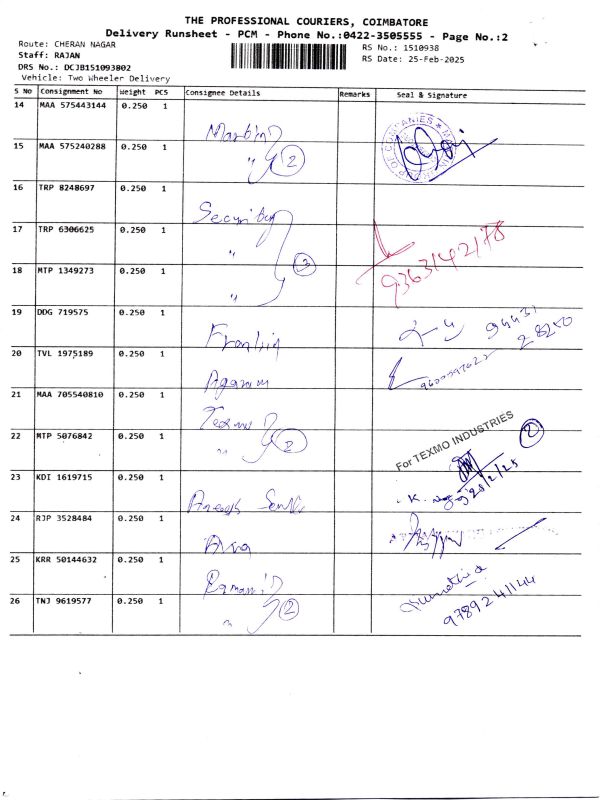 THE PROFESSIONAL COURIERS, COIMBATORE
Delivery Runsheet - PCM - Phone No.:0422-3505555 - Page No.:2
Route: CHERAN NAGAR
RS No.: 1510938
Staff: RAJAN
RS Date: 25-Feb-2025
DRS No.: DCJB151093802
Vehicle: Two Wheeler Delivery
S No Consignment No Weight PCS Consignee Details Remarks Seal & Signature
14 MAA 575443144 0.250 1
15 MAA 575240288 0.250 1 " 2
16 TRP 8248697 0.250 1 Security
17 TRP 6306625 0.250 1 " 9363142178
18 MTP 1349273 0.250 1 " 3
19 DDG 719575 0.250 1 94431 28250
20 TVL 1975189 0.250 1 Agaram
21 MAA 705540810 0.250 1 Texmo
For TEXMO INDUSTRIES 2
22 MTP 5076842 0.250 1 " 2
25/2/25
23 KDI 1619715 0.250 1
24 RJP 3528484 0.250 1
25 KRR 50144632 0.250 1 Ramani
26 TNJ 9619577 0.250 1 " 2 9789241144